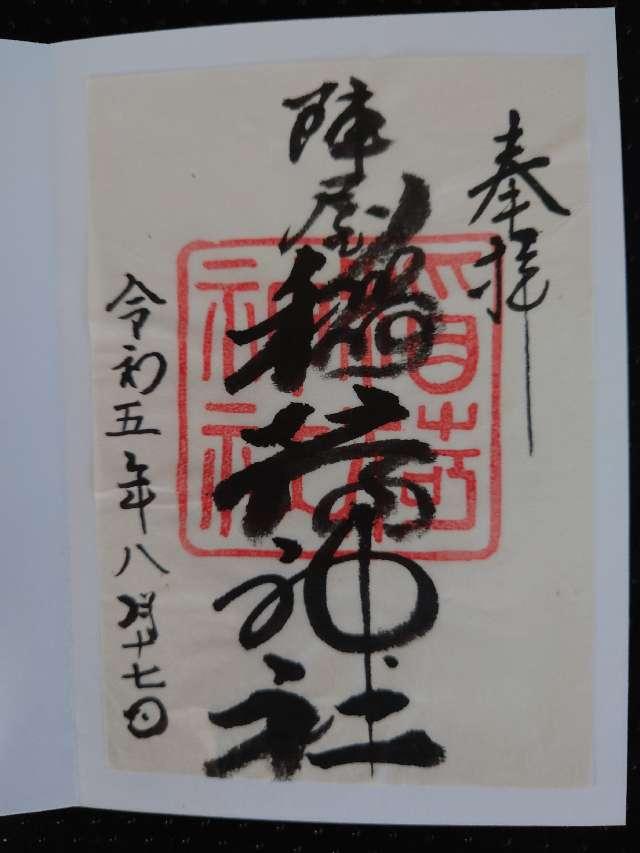 奉拝
陣屋稲荷神社
令和五年八月十七日